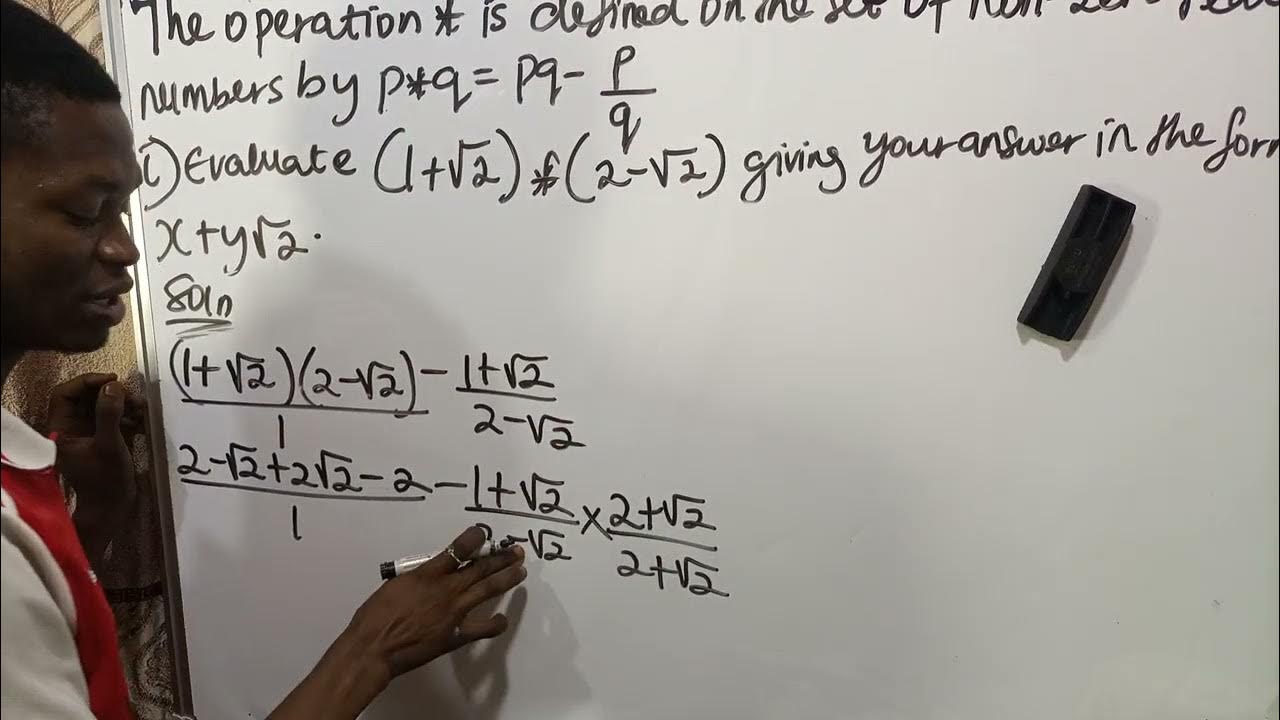 The operation * is defined on the set of non-zero real
numbers by p*q = pq - p/q
i) Evaluate (1+√2) * (2-√2) giving your answer in the form
x+y√2.
Soln
(1+√2)(2-√2)/1 - 1+√2/2-√2
2-√2+2√2-2/1 - 1+√2/2-√2 × 2+√2/2+√2